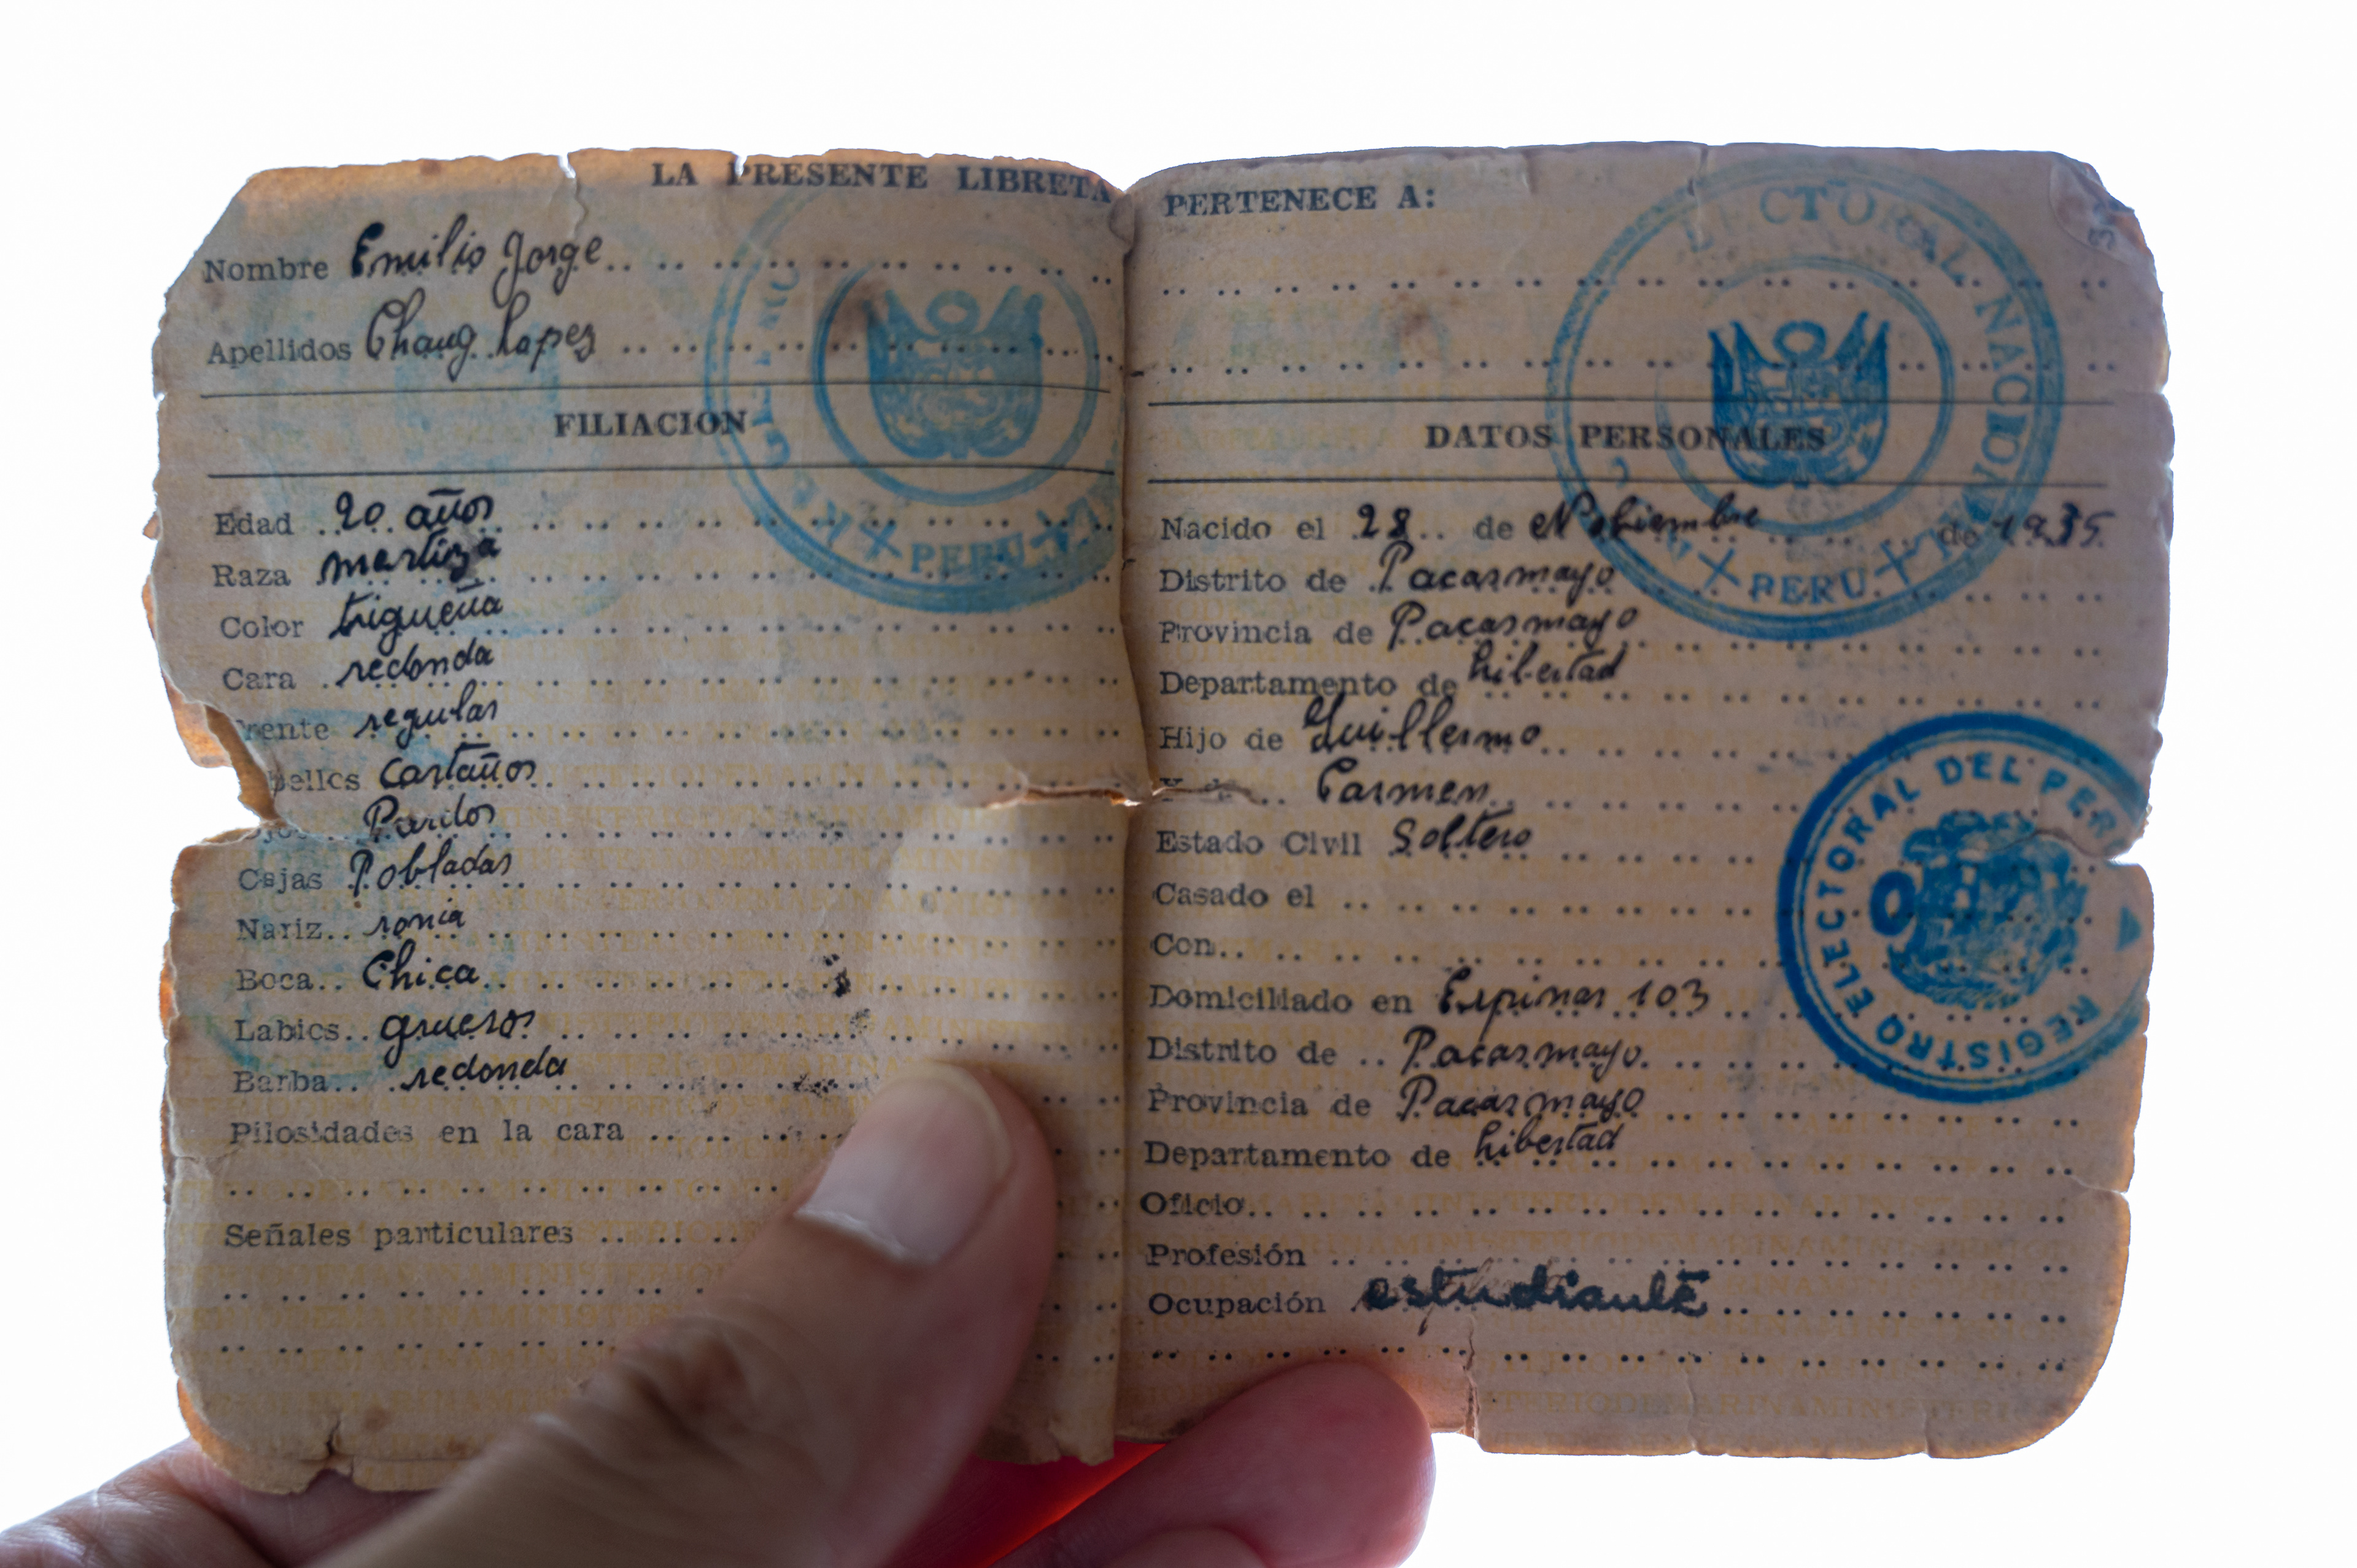 LA PRESENTE LIBRETA
Nombre Emilio Jorge
Apellidos Chang Lopez
FILIACION
Edad 20 años
Raza mestiza
Color trigueña
Cara redonda
rente regular
bellos Castaños
Pardos
Cejas Pobladas
Nariz roma
Boca Chica
Labios gruesos
Barba redonda
Pilosidades en la cara
Señales particulares
PERU
PERTENECE A:
DATOS PERSONALES
Nacido el 28 de Nobiembre de 1935
Distrito de Pacasmayo
Provincia de Pacasmayo
Departamento de Libertad
Hijo de Guillermo
Carmen
Estado Civil Soltero
Casado el
Con
Domiciliado en Espinar 103
Distrito de Pacasmayo
Provincia de Pacasmayo
Departamento de Libertad
Oficio
Profesión
Ocupación estudiante
ECTORAL NACIONAL
PERU
REGISTRO ELECTORAL DEL PERU